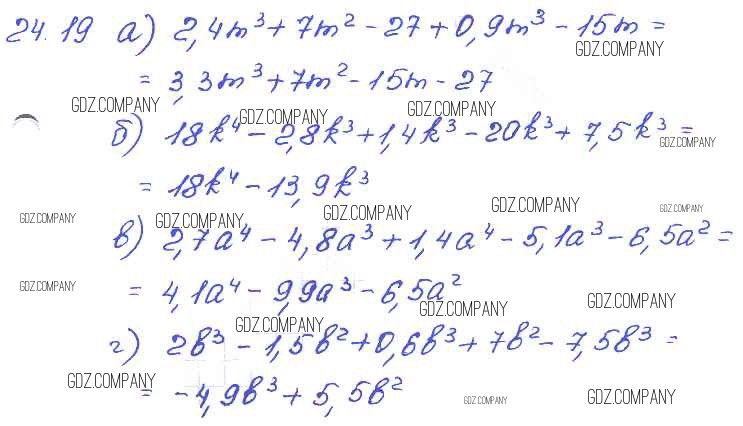 24.19 а) 2,4m³ + 7m² - 27 + 0,9m³ - 15m =
GDZ.COMPANY
= 3,3m³ + 7m² - 15m - 27
GDZ.COMPANY GDZ.COMPANY GDZ.COMPANY
б) 18k⁴ - 2,8k³ + 1,4k³ - 20k³ + 7,5k³ =
GDZ.COMPANY
= 18k⁴ - 13,9k³
GDZ.COMPANY GDZ.COMPANY GDZ.COMPANY GDZ.COMPANY GDZ.COMPANY
в) 2,7a⁴ - 4,8a³ + 1,4a⁴ - 5,1a³ - 6,5a² =
GDZ.COMPANY
= 4,1a⁴ - 9,9a³ - 6,5a²
GDZ.COMPANY GDZ.COMPANY GDZ.COMPANY
г) 2b³ - 1,5b² + 0,6b³ + 7b² - 7,5b³ =
GDZ.COMPANY
= -4,9b³ + 5,5b²
GDZ.COMPANY GDZ.COMPANY